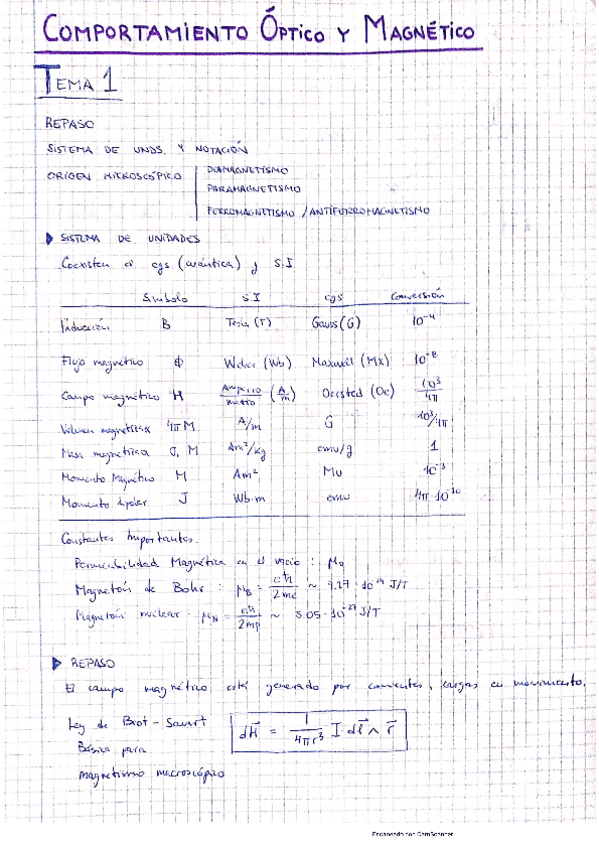 COMPORTAMIENTO ÓPTICO Y MAGNÉTICO
TEMA 1
REPASO
SISTEMA DE UNDS. Y NOTACIÓN
ORIGEN MICROSCÓPICO
DIAMAGNETISMO
PARAMAGNETISMO
FERROMAGNETISMO / ANTIFERROMAGNETISMO
SISTEMA DE UNIDADES
Coexisten el cgs (cuántica) y S.I
Símbolo S.I cgs Conversión
Inducción B Tesla (T) Gauss (G) 10⁻⁴
Flujo magnético ϕ Weber (Wb) Maxwell (Mx) 10⁻⁸
Campo magnético H Amperio/metro (A/m) Oersted (Oe) 10³/4π
Volumen magnética 4πM A/m G 10³/4π
Masa magnética J, M Am²/kg emu/g 1
Momento Magnético M Am² Mu 10⁻³
Momento bipolar J Wb·m emu 4π·10⁻¹⁰
Constantes Importantes.
Permeabilidad Magnética en el vacío : μ₀
Magnetón de Bohr : μ_B = eħ/2me ~ 9.27 · 10⁻²⁴ J/T
Magnetón nuclear : μ_N = eħ/2mp ~ 5.05 · 10⁻²⁷ J/T
REPASO
El campo magnético está generado por corrientes, cargas en movimiento.
Ley de Biot - Savart dH⃗ = 1/4πr³ I dl⃗ ∧ r⃗
Básica para
magnetismo macroscópico
Escaneado con CamScanner